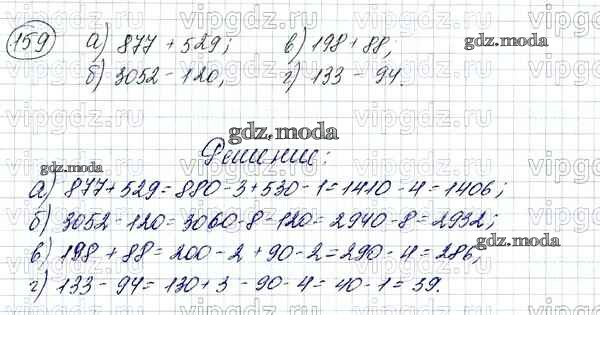 159 а) 877 + 529; в) 198 + 88;
б) 3052 - 120, г) 133 - 94.
Решение:
а) 877 + 529 = 880 - 3 + 530 - 1 = 1410 - 4 = 1406;
б) 3052 - 120 = 3060 - 8 - 120 = 2940 - 8 = 2932;
в) 198 + 88 = 200 - 2 + 90 - 2 = 290 - 4 = 286,
г) 133 - 94 = 130 + 3 - 90 - 4 = 40 - 1 = 39.
gdz.moda
gdz.moda
gdz.moda
gdz.moda
vipgdz.vipgdz.vipgdz.